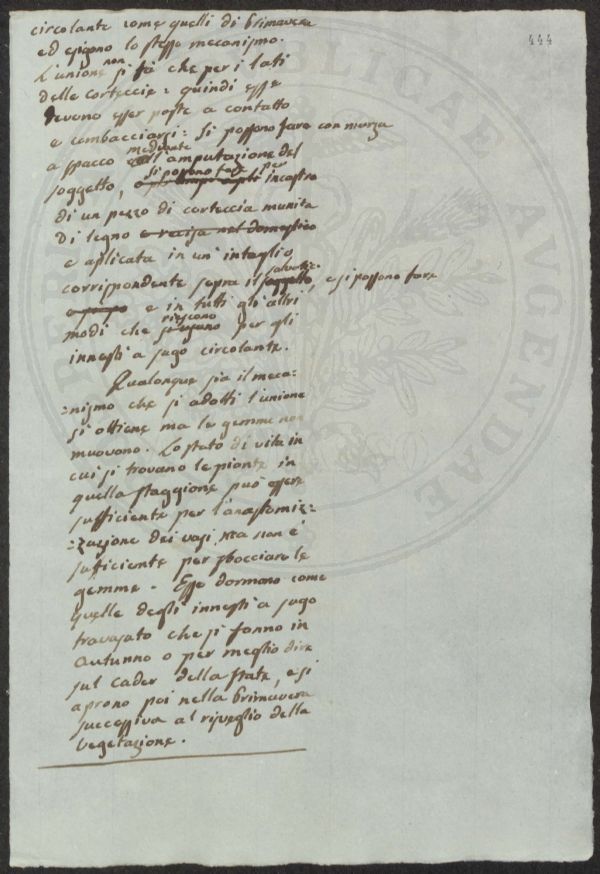 444
circolante come quelli di Primavera
ed esigono lo stesso mecanismo.
L'unione non si fà che per i lati
delle corteccie: quindi esse
devono esser poste a contatto
e combacciarsi: Si possono fare con marza
a spacco mediante l'amputazione del
soggetto, si possono fare per incastro
di un pezzo di corteccia munita
di legno e recisa nel domestico
e aplicata in un' intaglio
corrispondente sopra il salvatico soggetto, e si possono fare
e in tutti gli altri
modi che riescono si usano per gli
innesti a sugo circolante.
Qualonque sia il meca:
:nismo che si adotti l'unione
si ottiene ma le gemme non
muovono. Lo stato di vita in
cui si trovano le piante in
quella staggione può essere
sufficiente per l'anastomiz:
:zazione dei vasi, ma non è
sufficiente per sbocciare le
gemme. Esse dormono come
quelle degli innesti a sugo
travasato che si fanno in
Autunno o per meglio dire
sul cader della state, e si
aprono poi nella Primavera
successiva al risveglio della
vegetazione.
REI PUBLICAE AUGENDAE